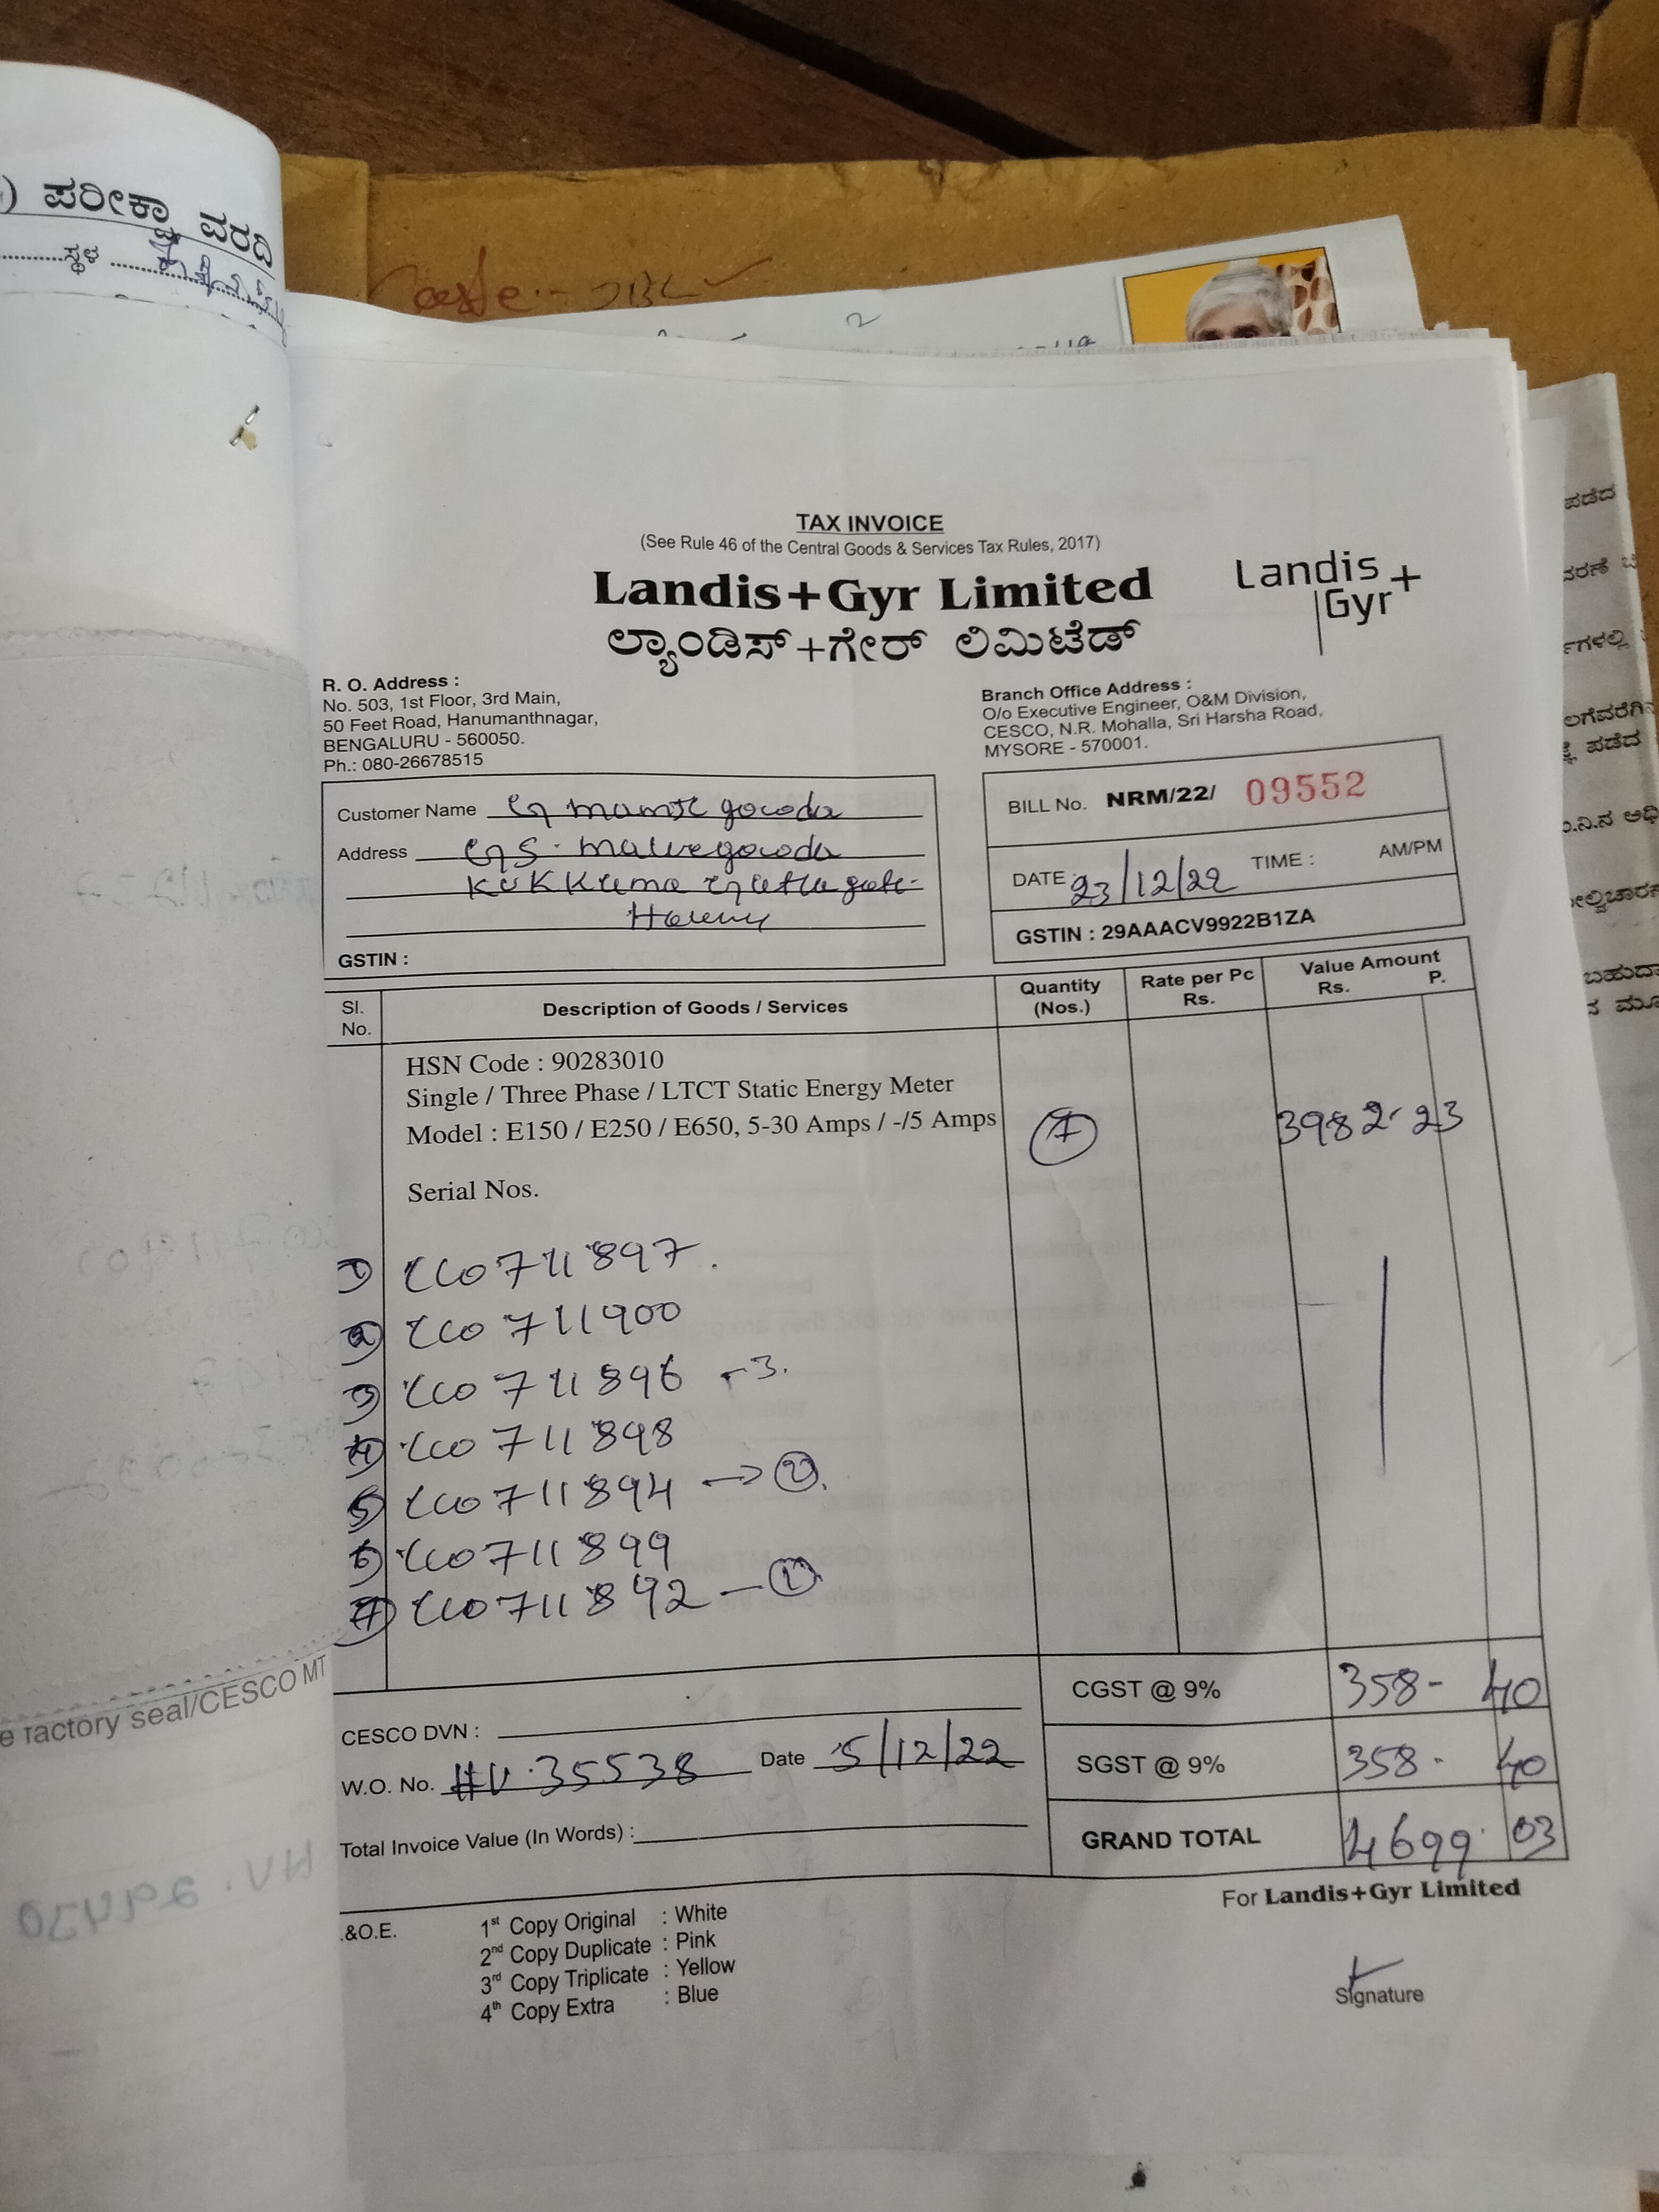 ಪರೀಕ್ಷಾ ವರದಿ
ಸ್ಥಳ
TAX INVOICE
(See Rule 46 of the Central Goods & Services Tax Rules, 2017)
Landis+Gyr Limited
ಲ್ಯಾಂಡಿಸ್+ಗೇರ್ ಲಿಮಿಟೆಡ್
Landis +
Gyr
R. O. Address :
No. 503, 1st Floor, 3rd Main,
50 Feet Road, Hanumanthnagar,
BENGALURU - 560050.
Ph.: 080-26678515
Branch Office Address :
O/o Executive Engineer, O&M Division,
CESCO, N.R. Mohalla, Sri Harsha Road,
MYSORE - 570001.
Customer Name gowda
Address
GSTIN :
BILL No. NRM/22/ 09552
DATE : 23/12/22 TIME : AM/PM
GSTIN : 29AAACV9922B1ZA
Sl. No. Description of Goods / Services Quantity (Nos.) Rate per Pc Rs. Value Amount Rs. P.
HSN Code : 90283010
Single / Three Phase / LTCT Static Energy Meter
Model : E150 / E250 / E650, 5-30 Amps / -/5 Amps 7 3982-23
Serial Nos.
1) 0711897
2) 0711900
3) 0711896 -3.
4) 0711898
5) 0711894 → 2
6) 0711899
7) 0711892 - 1
e factory seal/CESCO MT
CGST @ 9% 358- 40
CESCO DVN :
W.O. No. HV.35538 Date 5/12/22
SGST @ 9% 358- 40
Total Invoice Value (In Words) :
GRAND TOTAL 4699 03
For Landis+Gyr Limited
.&O.E.
1st Copy Original : White
2nd Copy Duplicate : Pink
3rd Copy Triplicate : Yellow
4th Copy Extra : Blue
Signature